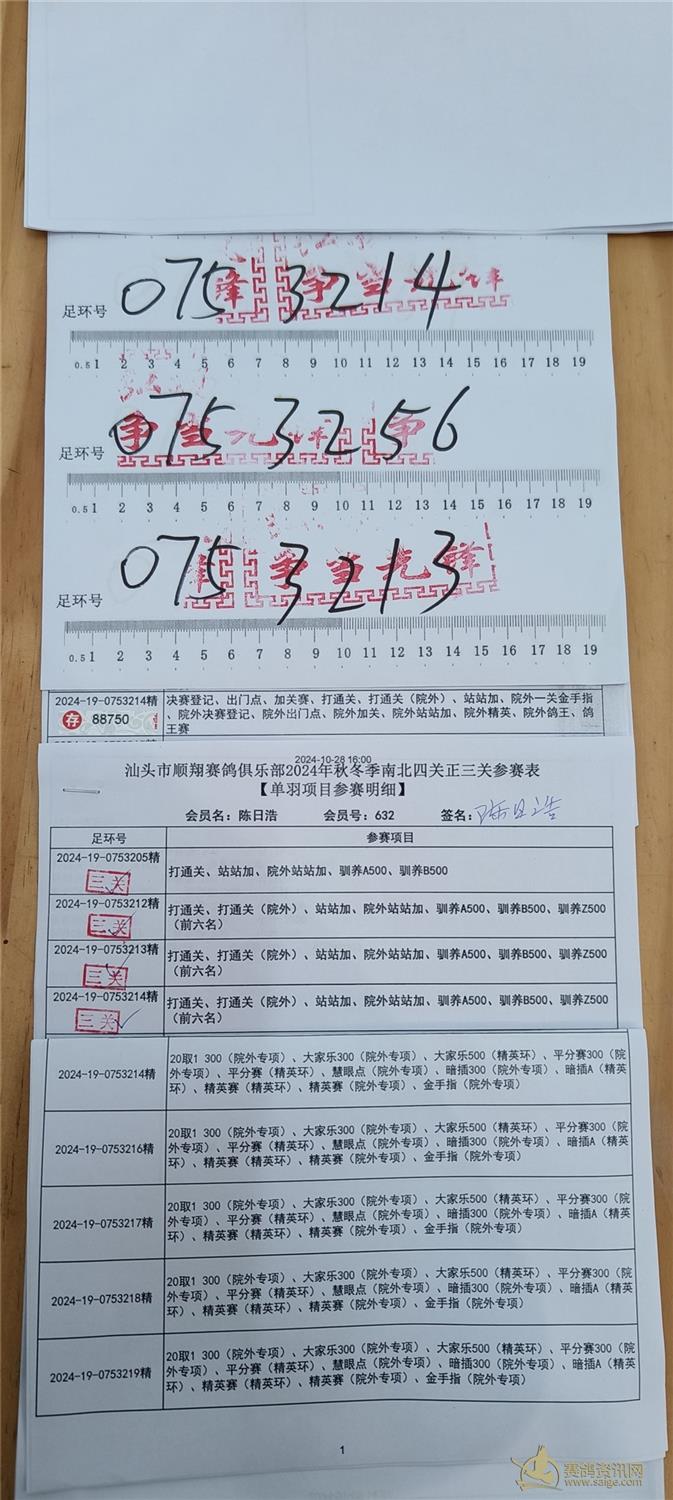 足环号 075 3214
0.5 1 2 3 4 5 6 7 8 9 10 11 12 13 14 15 16 17 18 19
足环号 075 3256
争当先锋
0.5 1 2 3 4 5 6 7 8 9 10 11 12 13 14 15 16 17 18 19
足环号 075 3213
争当先锋
0.5 1 2 3 4 5 6 7 8 9 10 11 12 13 14 15 16 17 18 19
2024-19-0753214精
存 88750
决赛登记、出门点、加关赛、打通关、打通关（院外）、站站加、院外一关金手指
、院外决赛登记、院外出门点、院外加关、院外站站加、院外精英、院外鸽王、鸽
王赛
2024-10-28 16:00
汕头市顺翔赛鸽俱乐部2024年秋冬季南北四关正三关参赛表
【单羽项目参赛明细】
会员名：陈日浩 会员号：632 签名：陈日浩
足环号 参赛项目
2024-19-0753205精
三关
打通关、站站加、院外站站加、驯养A500、驯养B500
2024-19-0753212精
三关
打通关、打通关（院外）、站站加、院外站站加、驯养A500、驯养B500、驯养Z500
（前六名）
2024-19-0753213精
三关
打通关、打通关（院外）、站站加、院外站站加、驯养A500、驯养B500、驯养Z500
（前六名）
2024-19-0753214精
三关
打通关、打通关（院外）、站站加、院外站站加、驯养A500、驯养B500、驯养Z500
（前六名）
2024-19-0753214精
20取1 300（院外专项）、大家乐300（院外专项）、大家乐500（精英环）、平分赛300（院
外专项）、平分赛（精英环）、慧眼点（院外专项）、暗插300（院外专项）、暗插A（精英
环）、精英赛（精英环）、精英赛（院外专项）、金手指（院外专项）
2024-19-0753216精
20取1 300（院外专项）、大家乐300（院外专项）、大家乐500（精英环）、平分赛300（院
外专项）、平分赛（精英环）、慧眼点（院外专项）、暗插300（院外专项）、暗插A（精英
环）、精英赛（精英环）、精英赛（院外专项）、金手指（院外专项）
2024-19-0753217精
20取1 300（院外专项）、大家乐300（院外专项）、大家乐500（精英环）、平分赛300（院
外专项）、平分赛（精英环）、慧眼点（院外专项）、暗插300（院外专项）、暗插A（精英
环）、精英赛（精英环）、精英赛（院外专项）、金手指（院外专项）
2024-19-0753218精
20取1 300（院外专项）、大家乐300（院外专项）、大家乐500（精英环）、平分赛300（院
外专项）、平分赛（精英环）、慧眼点（院外专项）、暗插300（院外专项）、暗插A（精英
环）、精英赛（精英环）、精英赛（院外专项）、金手指（院外专项）
2024-19-0753219精
20取1 300（院外专项）、大家乐300（院外专项）、大家乐500（精英环）、平分赛300（院
外专项）、平分赛（精英环）、慧眼点（院外专项）、暗插300（院外专项）、暗插A（精英
环）、精英赛（精英环）、精英赛（院外专项）、金手指（院外专项）
1
赛鸽资讯网
www.saige.com